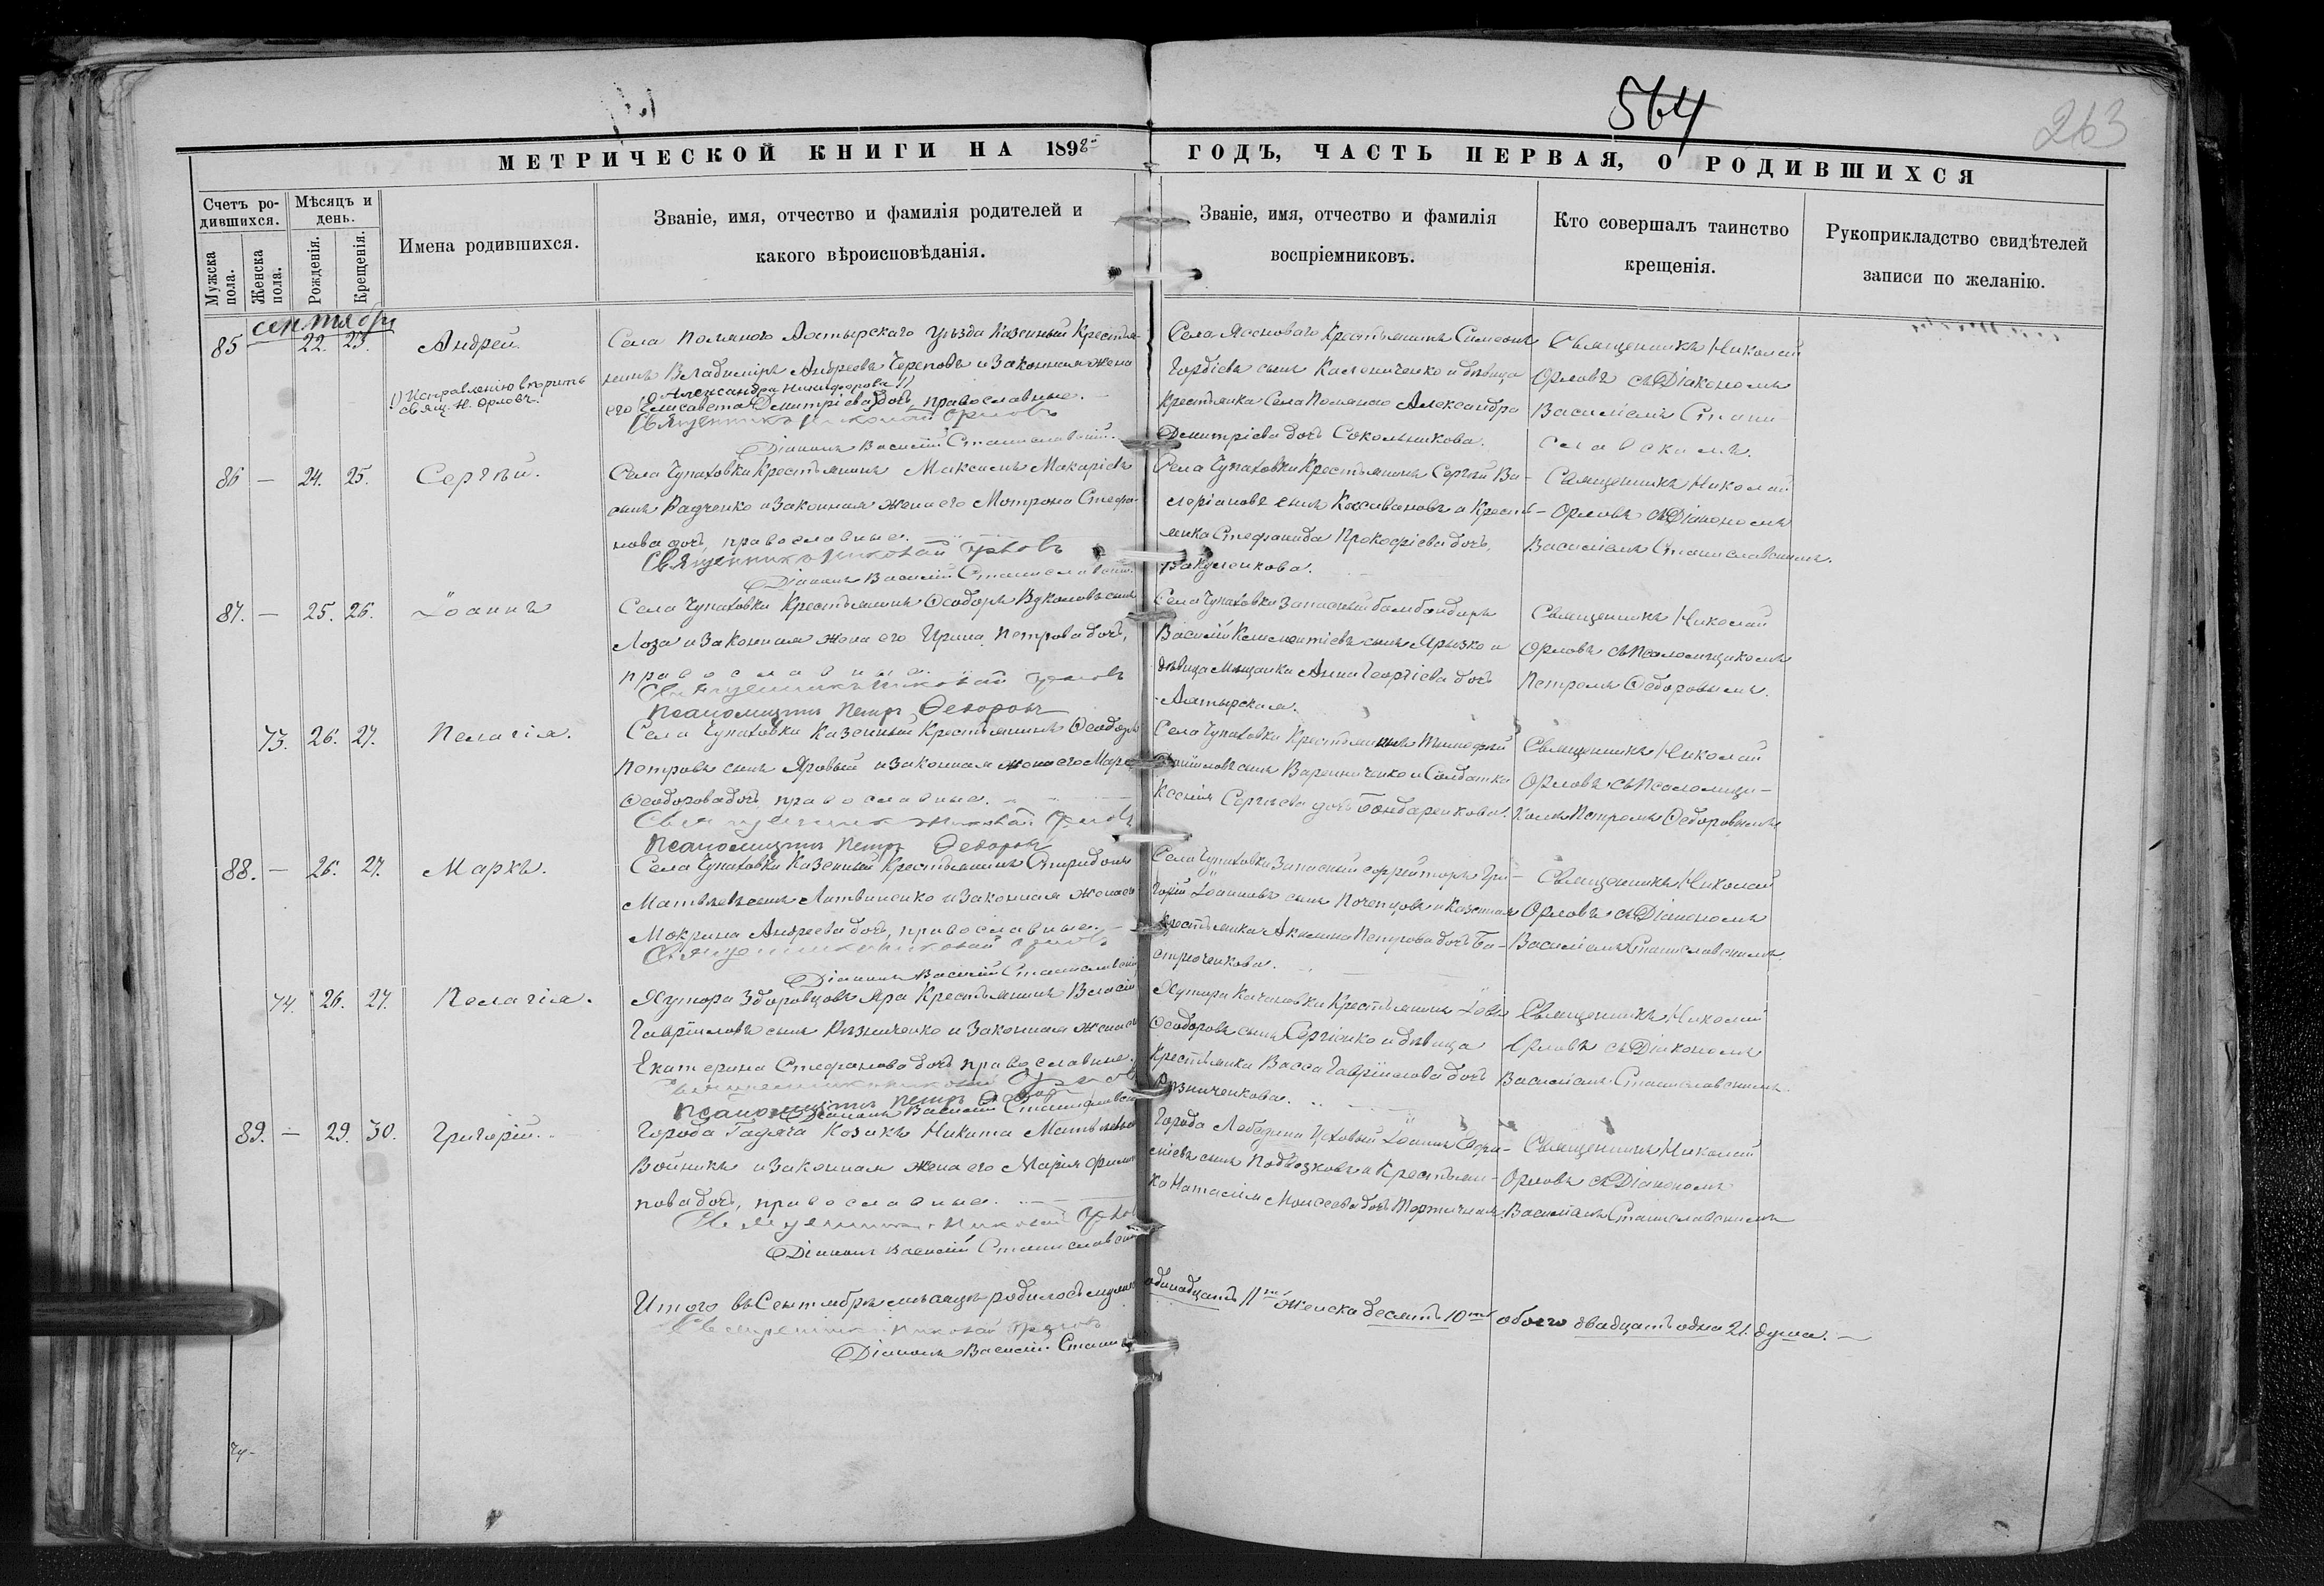 564
263
МЕТРИЧЕСКОЙ КНИГИ НА 1898 ГОДЪ, ЧАСТЬ ПЕРВАЯ, О РОДИВШИХСЯ
Счетъ родившихся.
Мужска пола.
Женска пола.
Мѣсяцъ и день.
Рожденія.
Крещенія.
Имена родившихся.
Званіе, имя, отчество и фамилія родителей и
какого вѣроисповѣданія.
Званіе, имя, отчество и фамилія
воспріемниковъ.
Кто совершалъ таинство
крещенія.
Рукоприкладство свидѣтелей
записи по желанію.
сентябрь
85 22. 23. Андрей
1) Исправленію вѣрить
свящ. Н. Орловъ.
Села Поляного Ахтырскаго уѣзда Казенный Крестья-
нинъ Владиміръ Андреевъ Череповъ и Законная жена
Александра Никифорова 1)
его Елисавета Димитріева дочь, православные.
Священникъ Николай Орловъ
Діаконъ Василій Станиславскій.
Села Ясеноваго Крестьянинъ Симеонъ
Гордіевъ сынъ и дѣвица
Крестьянка Села Поляного Александра
Димитріева дочь Сокольникова.
Священникъ Николай
Орловъ съ Діакономъ
Василіемъ Стани
славскимъ.
86 — 24. 25. Сергѣй.
Села Чупаховки Крестьянинъ Максимъ Макаріевъ
сынъ Радченко и Законная жена его Мотрона Стефа-
нова дочь, православные.
Священникъ Николай Орловъ
Діаконъ Василій Станиславскій.
Села Чупаховки Крестьянинъ Сергѣй Ва-
леріановъ сынъ и Кресть-
янка Стефанида Прокофіева дочь,
Вакуленкова.
Священникъ Николай
Орловъ съ Діакономъ
Василіемъ Станиславскимъ.
87. — 25. 26. Іоаннъ
Села Чупаховки Крестьянинъ Ѳеодоръ Вуколовъ сынъ
Лоза и Законная жена его Ирина Петрова дочь,
православные.
Священникъ Николай Орловъ
Псаломщикъ Петръ Ѳедоровъ
Села Чупаховки Запасный бамбандиръ
Василій Клементіевъ сынъ Ярызко и
дѣвица Мѣщанка Анна Георгіева дочь
Ахтырская.
Священникъ Николай
Орловъ съ Псаломщикомъ
Петромъ Ѳедоровымъ.
73. 26. 27. Пелагія.
Села Чупаховки Казенный Крестьянинъ Ѳеодоръ
Петровъ сынъ Яровый и Законная жена его Марѳа
Ѳеодорова дочь, православные.
Священникъ Николай Орловъ
Псаломщикъ Петръ Ѳедоровъ
Села Чупаховки Крестьянинъ Тимофей
сынъ Варенниченко и Солдатка
Ксенія Сергѣева дочь Бондаренкова.
Священникъ Николай
Орловъ съ Псаломщи-
комъ Петромъ Ѳедоровымъ
88. — 26. 27. Маркъ.
Села Чупаховки Казенный Крестьянинъ Спиридонъ
Матвѣевъ сынъ Литвиненко и Законная жена его
Мокрина Андреева дочь, православные.
Священникъ Николай Орловъ
Діаконъ Василій Станиславскій
Села Чупаховки Запасный еффейторъ Гри-
горій Іоанновъ сынъ Почепцовъ и Казенная
Крестьянка Акилина Петрова дочь Ба-
стрюченкова.
Священникъ Николай
Орловъ съ Діакономъ
Василіемъ Станиславскимъ.
74. 26. 27. Пелагія.
Хутора Здоровцовъ Яра Крестьянинъ Власій
Гавріиловъ сынъ Рѣзниченко и Законная жена его
Екатерина Стефанова дочь православные.
Священникъ Николай Орловъ
Псаломщикъ Петръ Ѳедоровъ
Діаконъ Василій Станиславскій
Хутора Качановки Крестьянинъ
Ѳеодоровъ сынъ Сергіенко и дѣвица
Крестьянка Васса Гавріилова дочь
Рѣзниченкова.
Священникъ Николай
Орловъ съ Діакономъ
Василіемъ Станиславскимъ.
89. — 29. 30. Григорій.
Города Гадяча Козакъ Никита Матвѣевъ
Войникъ и Законная жена его Марія Филип-
пова дочь, православные.
Священникъ Николай Орловъ
Діаконъ Василій Станиславскій
Города Лебедина Цеховый Іоаннъ Ефи-
міевъ сынъ Подвозковъ и Крестьян-
ка Наталія Моисеева дочь
Священникъ Николай
Орловъ съ Діакономъ
Василіемъ Станиславскимъ
Итого въ Сентябрѣ мѣсяцѣ родилось мужска одинадцать 11ть женска десять 10ть обоего двадцать одна 21. душа.
Священникъ Николай Орловъ
Діаконъ Василій Станисл